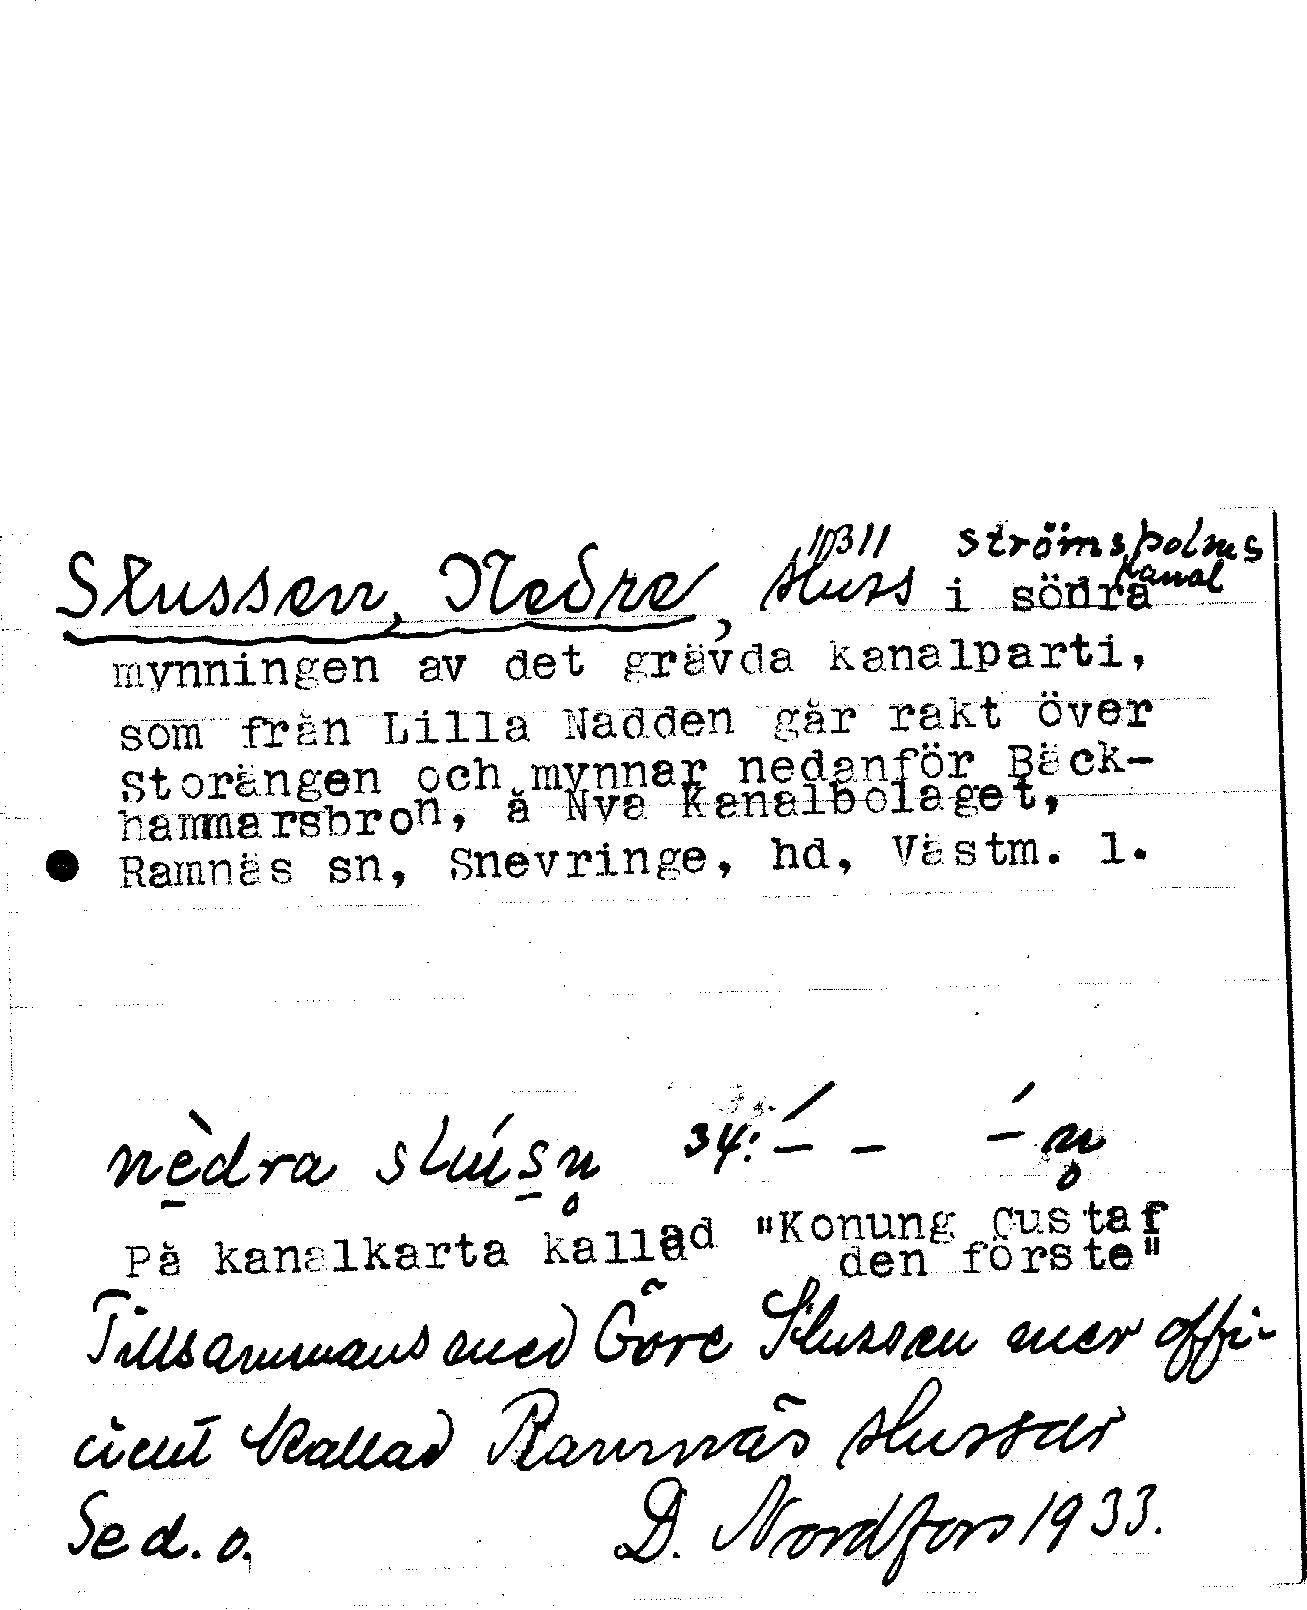 Slussen, Nedre, sluss i södra Strömsholms Kanal
mynningen av det grävda kanalparti,
som från Lilla Nadden går rakt över
Storängen och mynnar nedanför Bäck-
hammarsbron, å Nya Kanalbolaget,
Ramnäs sn, Snevringe, hd, Västm. l.
nèdra slúsn 34:
På kanalkarta kallad "Konung Gustaf
den förste"
Tillsammans med Övre Slussen mer offi-
ciellt kallad Ramnäs slussar
Se d. o. D. Nordfors 1933.